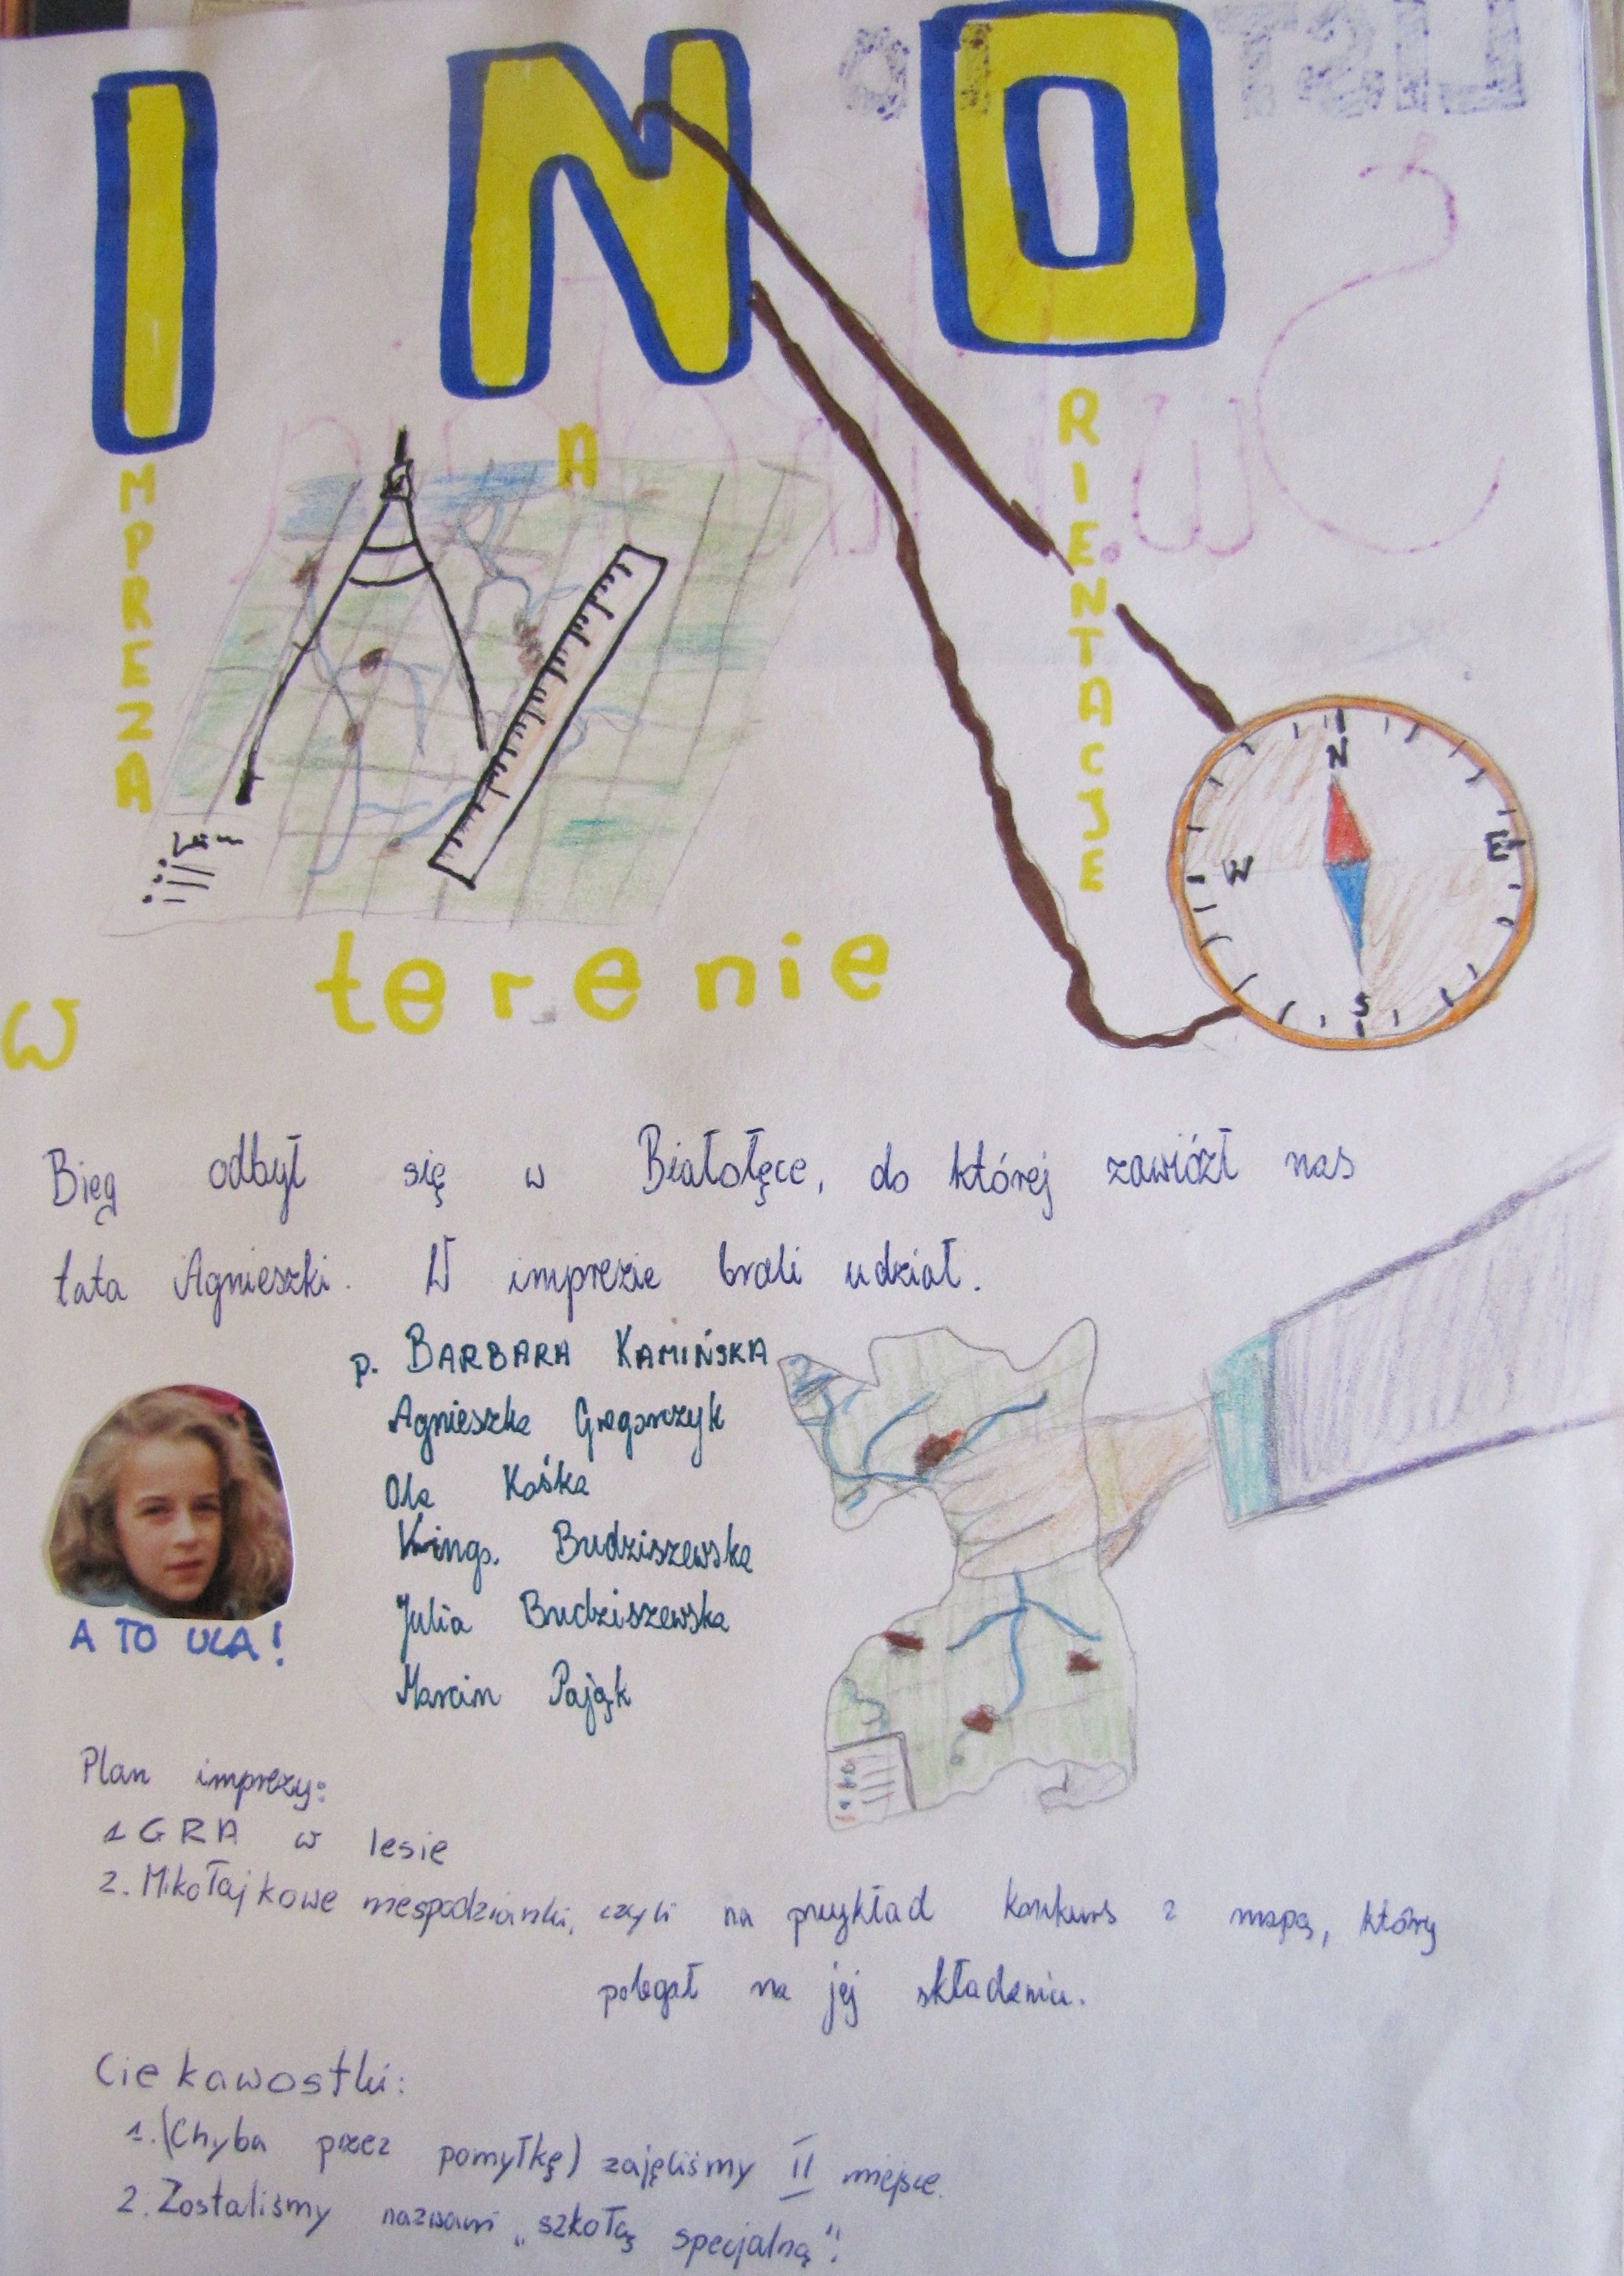 INO
IMPREZA
NA
ORIENTACJE
w terenie
N
E
W
S
Bieg odbył się w Białołęce, do której zawiózł nas
tata Agnieszki. W imprezie brali udział.
p. BARBARA KAMIŃSKA
Agnieszka Gregorczyk
Ola Kośka
Kinga Budziszewska
Julia Budziszewska
Marcin Pająk
A TO ULA!
Plan imprezy:
1 GRA w lesie
2. Mikołajkowe niespodzianki, czyli na przykład konkurs z mapą, który
polegał na jej składaniu.
Ciekawostki:
1. (Chyba przez pomyłkę) zajęliśmy II miejsce.
2. Zostaliśmy nazwani „szkołą specjalną".